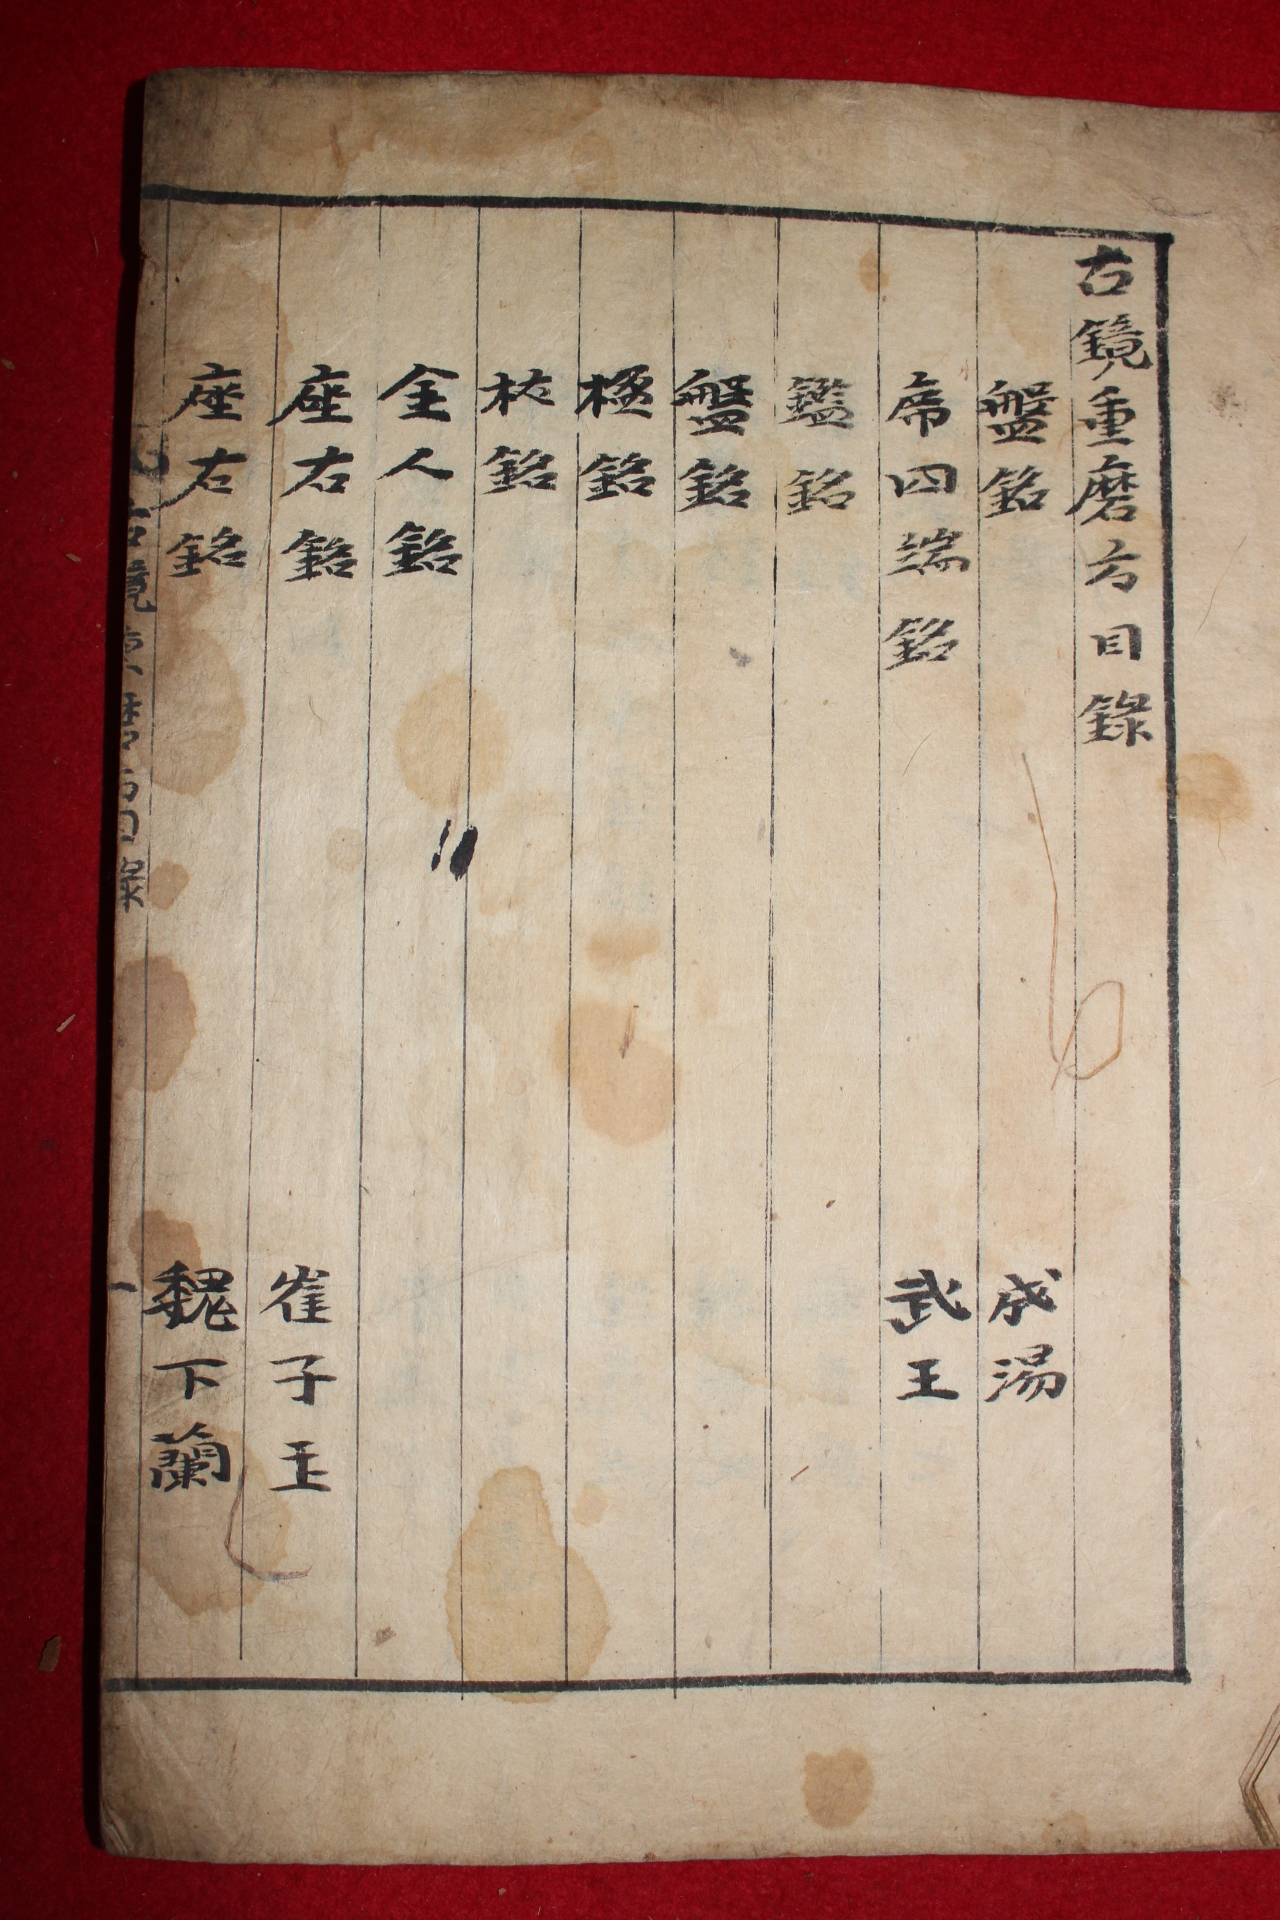 古鏡重磨方目錄
盤銘 成湯
席四端銘 武王
鑑銘
盤銘
楹銘
杖銘
金人銘
座右銘 崔子玉
座右銘 魏卞蘭
古鏡重磨方目錄 一